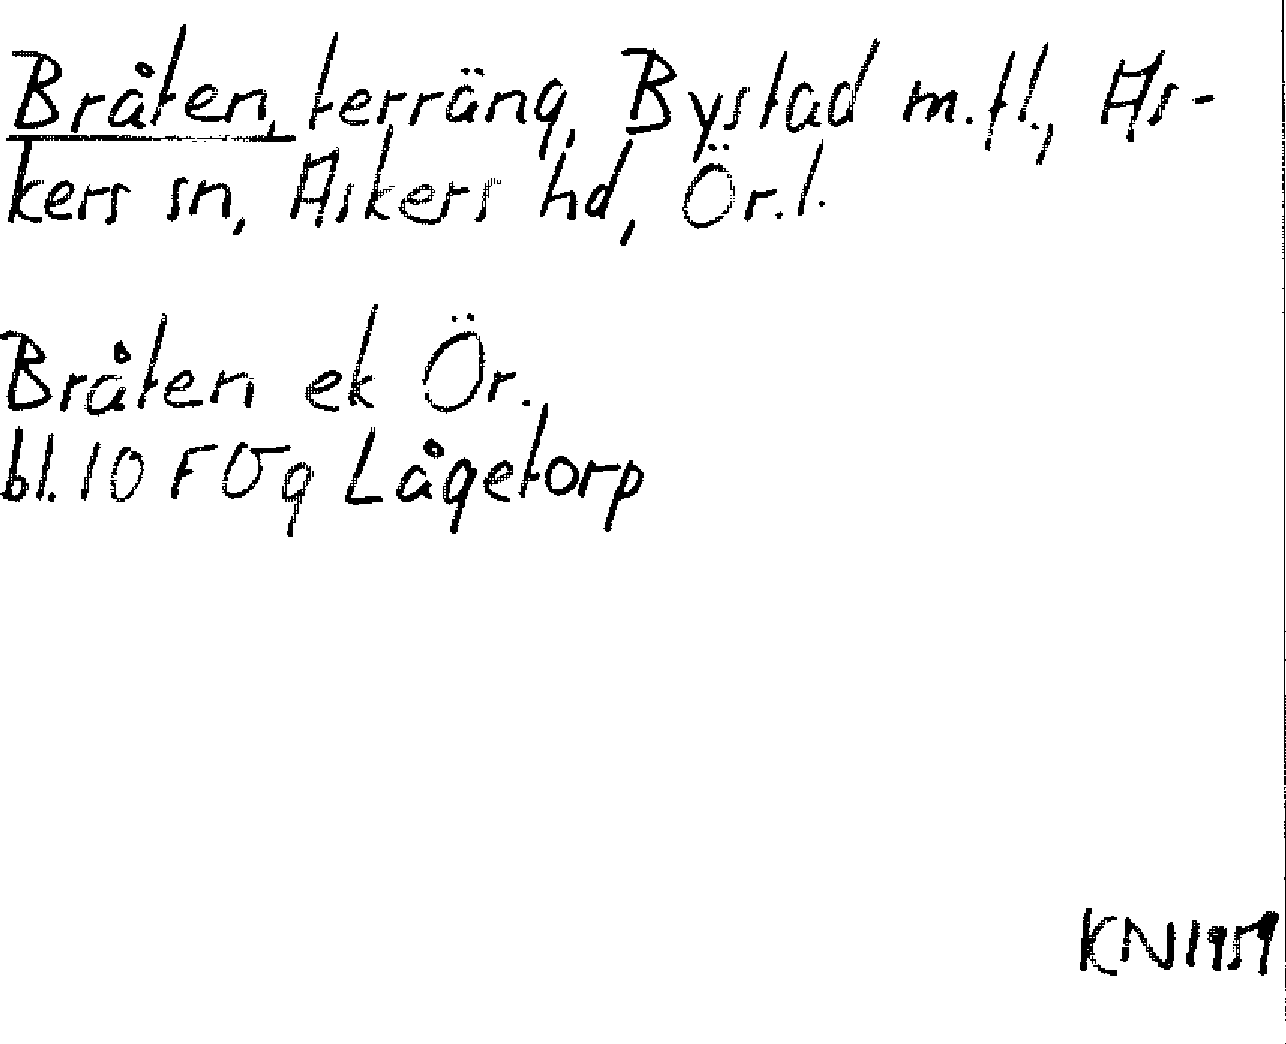 Bråten, terräng, Bystad m.fl., As-
kers sn, Askers hd, Ör.l.
Bråten ek Ör.
bl. 10 F Ög Lågetorp
KN 1959